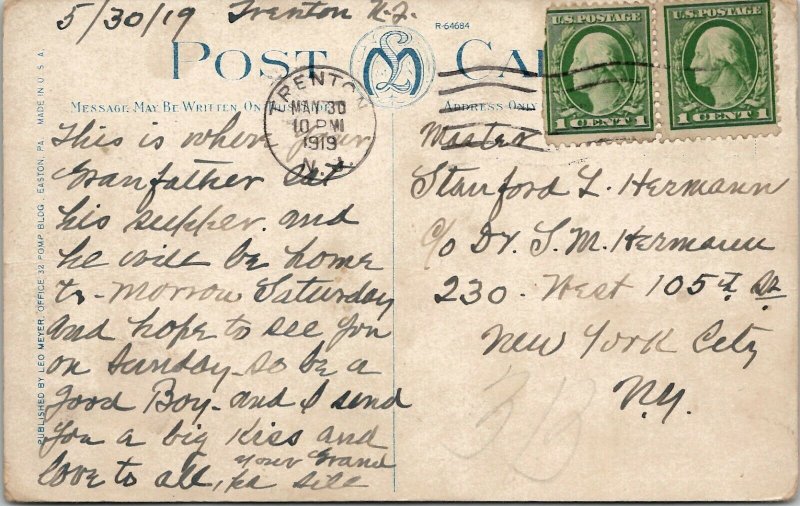 5/30/19 Trenton N.J.
R-64684
POST CA
MESSAGE MAY BE WRITTEN ON
ADDRESS ONLY
TRENTON
MAY 30
10 PM
1919
N.J.
U.S. POSTAGE
1 CENT 1
U.S. POSTAGE
1 CENT 1
PUBLISHED BY LEO MEYER, OFFICE, 32 POMP BLDG., EASTON, PA. MADE IN U.S.A.
This is where your
Granfather eat
his supper. and
he will be home
to-morrow Saturday
and hope to see you
on Sunday-so be a
good Boy-and I send
you a big Kiss and
love to all, your Grand
pa
Master
Stanford L. Hermann
c/o Dr. S. M. Hermann
230. West 105th St
New York City
N.Y.